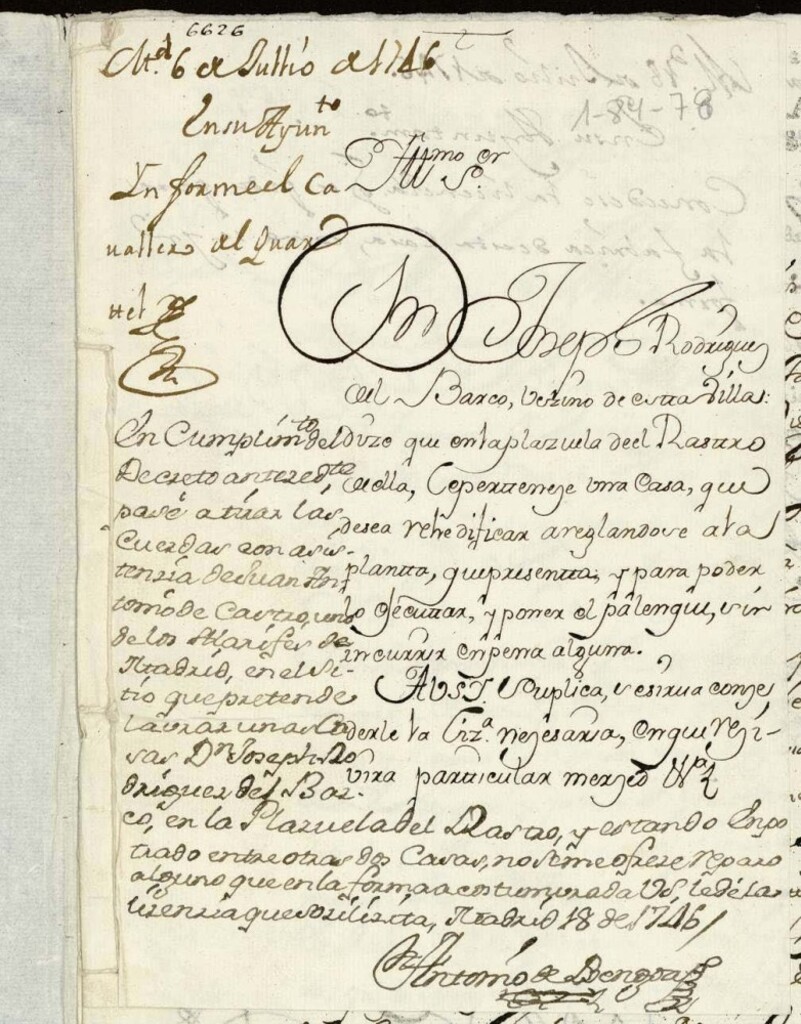 6626
M.d 6 de Jullio de 1746
En su Ayun.to
1-84-78
Informe el Ca
vallero del Quar
tel
Yll.mo S.or
Dn Joseph Rodriguez
del Barco, vezino de esta Villa:
Dize que en la plazuela deel Rastro
de ella, le perteneze una Casa, que
desea rehedificar areglandose a la
plantta, que presentta, y para poder
lo ejecuttar, y poner el palenque, sin
incurrir en pena alguna.
A V.S.Y. Suplica, se sirva conze
derle la liz.a nezesaria, en que rezi-
vira particular merzed
En Cumplim.to del
Decreto anteced.te
pasé a tirar las
Cuerdas con asis-
tenzia de Juan An
tonio de Castro, uno
de los Alarifes de
Madrid, en el si-
tio que pretende
labrar unas Ca
sas Dn Joseph Ro
driguez del Bar-
co, en la Plazuela del Rastro, y estando Enpo
trado entre otras dos Casas, no se me ofreze reparo
alguno que en la forma acostumvrada VS, le dé la
lizenzia que solizita, Madrid 18 de 1746
Antonio de Bengoa